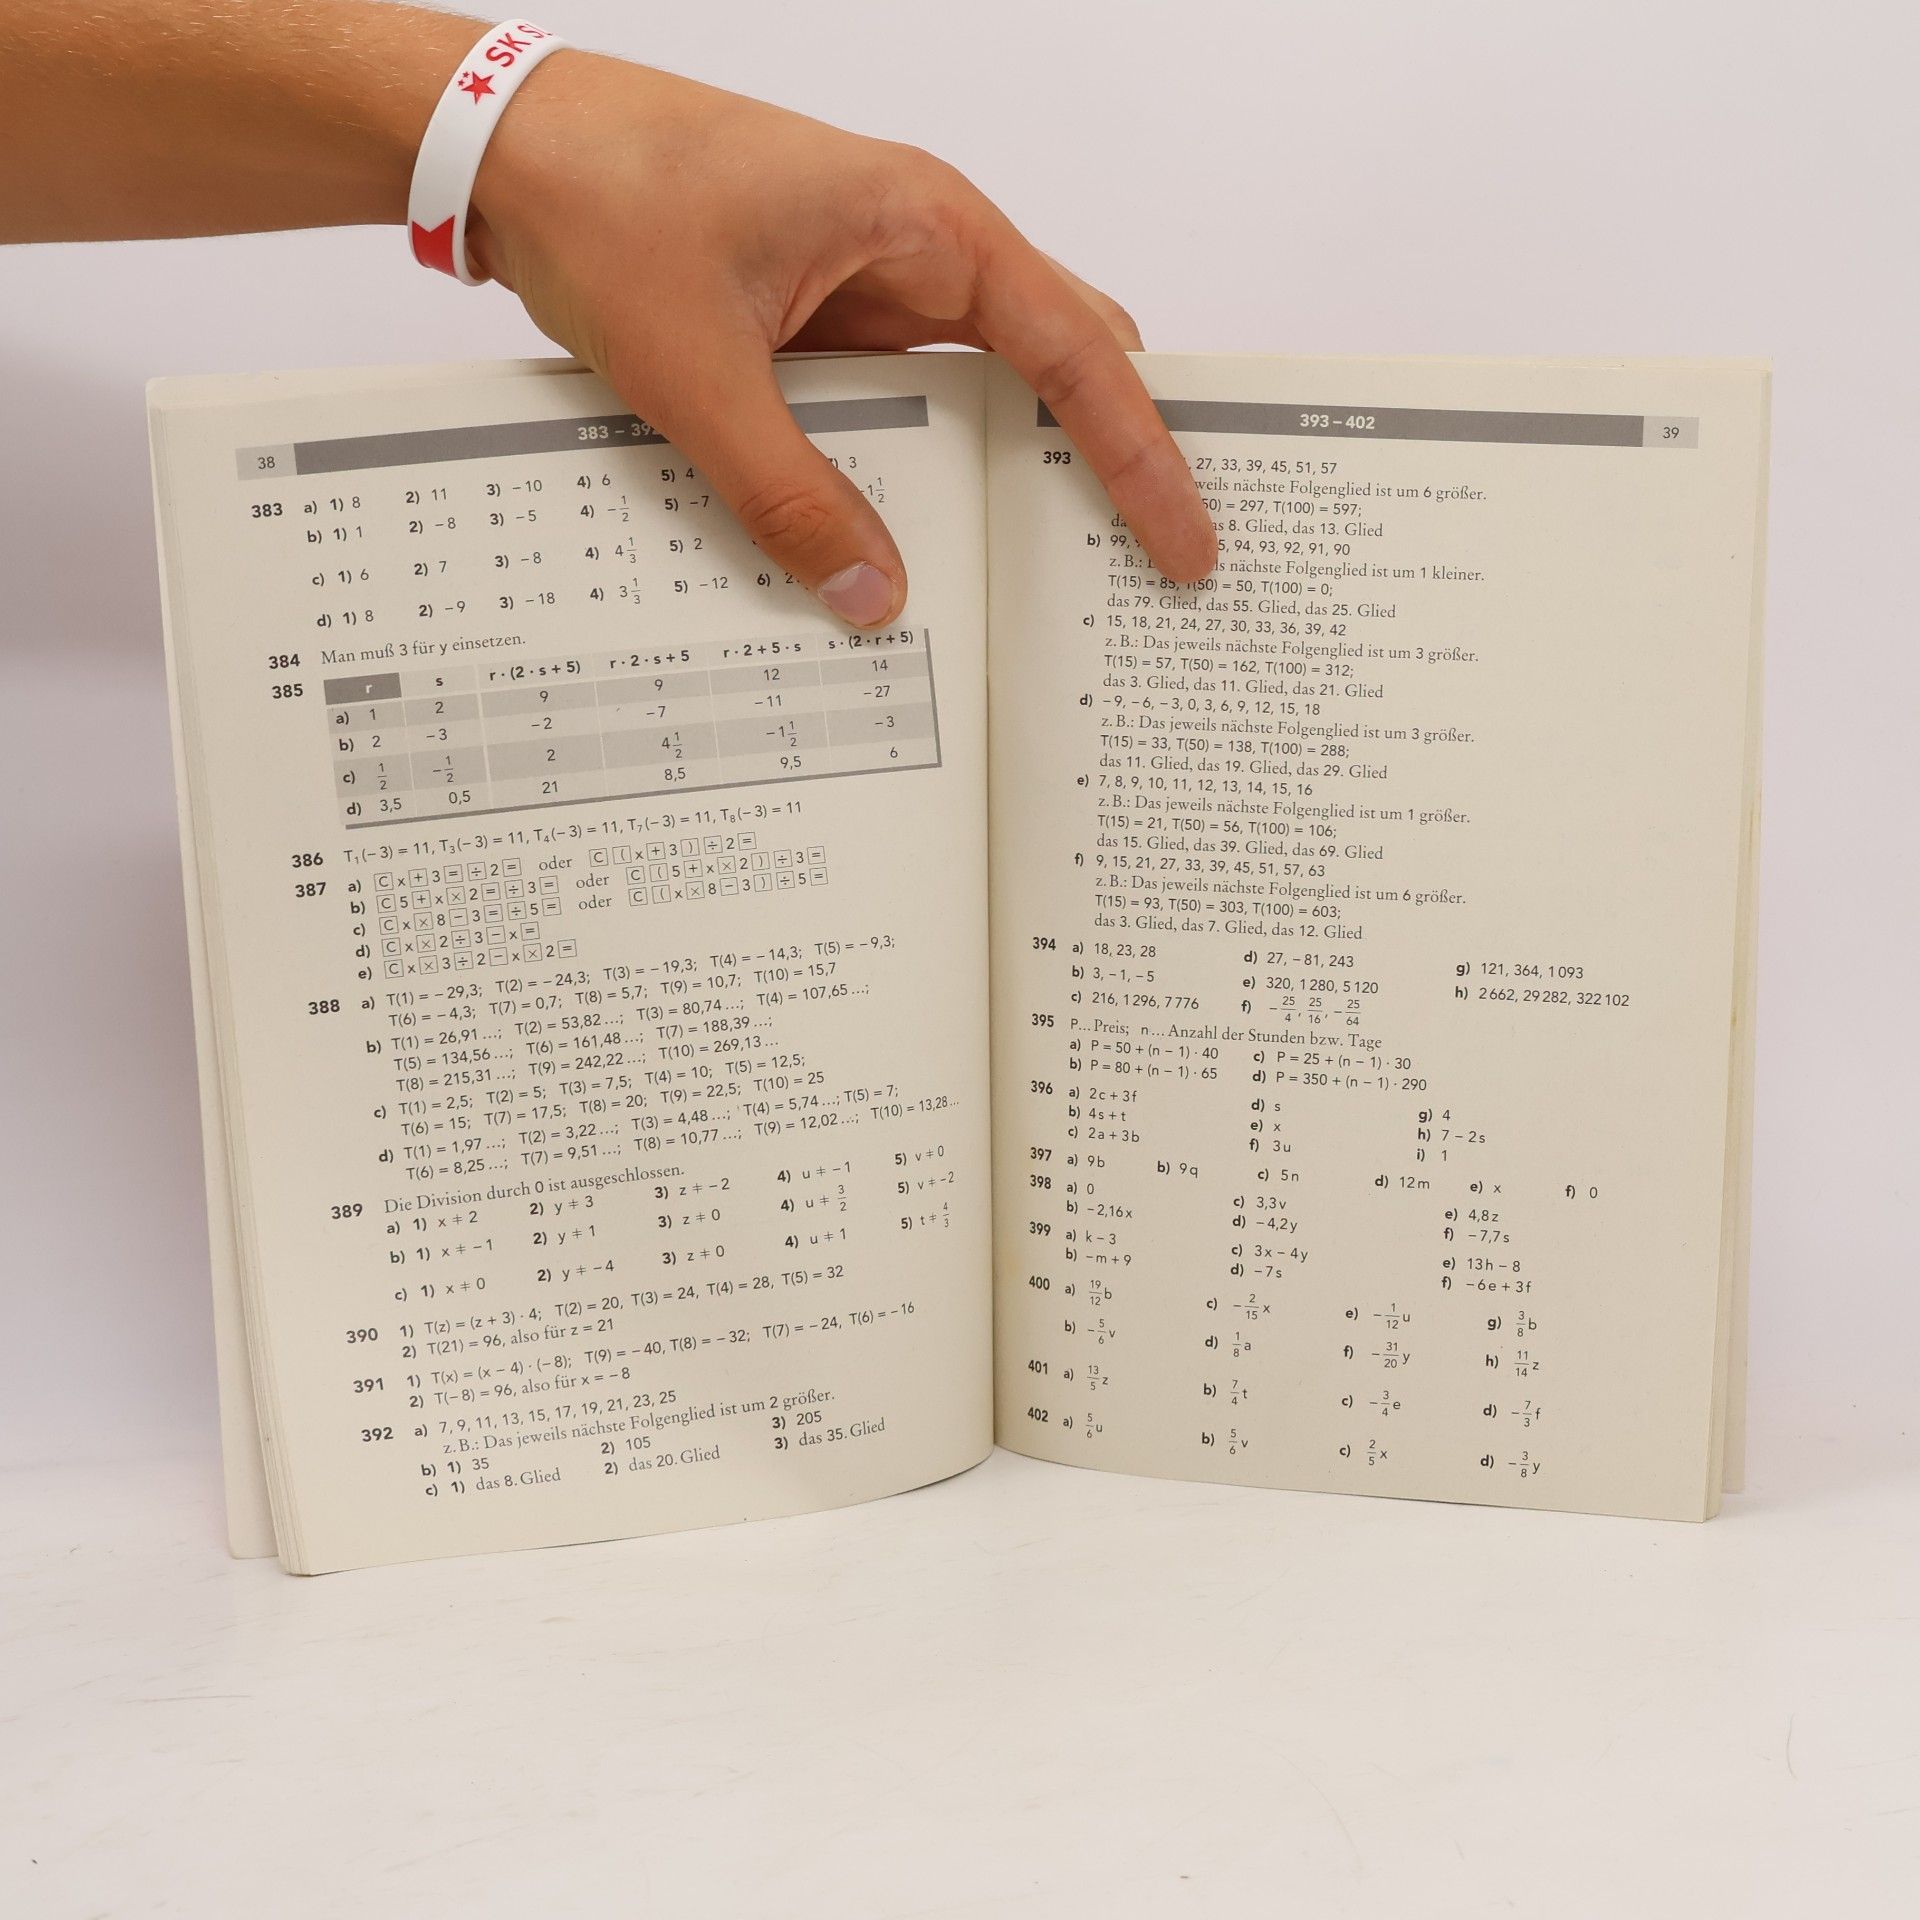 SK
38
383 –
383 a) 1) 8 2) 11 3) – 10 4) 6 5) 4 3
b) 1) 1 2) – 8 3) – 5 4) – 1/2 5) – 7 – 1 1/2
c) 1) 6 2) 7 3) – 8 4) 4 1/3 5) 2
d) 1) 8 2) – 9 3) – 18 4) 3 1/3 5) – 12 6)
384 Man muß 3 für y einsetzen.
385 r s r · (2 · s + 5) r · 2 · s + 5 r · 2 + 5 · s s · (2 · r + 5)
a) 1 2 9 9 12 14
b) 2 – 3 – 2 – 7 – 11 – 27
c) 1/2 – 1/2 2 4 1/2 – 1 1/2 – 3
d) 3,5 0,5 21 8,5 9,5 6
386 T₁(– 3) = 11, T₃(– 3) = 11, T₄(– 3) = 11, T₇(– 3) = 11, T₈(– 3) = 11
387 a) C x + 3 = ÷ 2 = oder C ( x + 3 ) ÷ 2 =
b) C 5 + x × 2 = ÷ 3 = oder C ( 5 + x × 2 ) ÷ 3 =
c) C x × 8 – 3 = ÷ 5 = oder C ( x × 8 – 3 ) ÷ 5 =
d) C x × 2 ÷ 3 – x =
e) C x × 3 ÷ 2 – x × 2 =
388 a) T(1) = – 29,3; T(2) = – 24,3; T(3) = – 19,3; T(4) = – 14,3; T(5) = – 9,3;
T(6) = – 4,3; T(7) = 0,7; T(8) = 5,7; T(9) = 10,7; T(10) = 15,7
b) T(1) = 26,91 ...; T(2) = 53,82 ...; T(3) = 80,74 ...; T(4) = 107,65 ...;
T(5) = 134,56 ...; T(6) = 161,48 ...; T(7) = 188,39 ...;
T(8) = 215,31 ...; T(9) = 242,22 ...; T(10) = 269,13 ...
c) T(1) = 2,5; T(2) = 5; T(3) = 7,5; T(4) = 10; T(5) = 12,5;
T(6) = 15; T(7) = 17,5; T(8) = 20; T(9) = 22,5; T(10) = 25
d) T(1) = 1,97 ...; T(2) = 3,22 ...; T(3) = 4,48 ...; T(4) = 5,74 ...; T(5) = 7;
T(6) = 8,25 ...; T(7) = 9,51 ...; T(8) = 10,77 ...; T(9) = 12,02 ...; T(10) = 13,28 ...
389 Die Division durch 0 ist ausgeschlossen.
a) 1) x ≠ 2 2) y ≠ 3 3) z ≠ – 2 4) u ≠ – 1 5) v ≠ 0
b) 1) x ≠ – 1 2) y ≠ 1 3) z ≠ 0 4) u ≠ 3/2 5) v ≠ – 2
c) 1) x ≠ 0 2) y ≠ – 4 3) z ≠ 0 4) u ≠ 1 5) t ≠ 4/3
390 1) T(z) = (z + 3) · 4; T(2) = 20, T(3) = 24, T(4) = 28, T(5) = 32
2) T(21) = 96, also für z = 21
391 1) T(x) = (x – 4) · (– 8); T(9) = – 40, T(8) = – 32; T(7) = – 24, T(6) = – 16
2) T(– 8) = 96, also für x = – 8
392 a) 7, 9, 11, 13, 15, 17, 19, 21, 23, 25
z. B.: Das jeweils nächste Folgenglied ist um 2 größer.
b) 1) 35 2) 105 3) 205
c) 1) das 8. Glied 2) das 20. Glied 3) das 35. Glied
393 – 402 39
393 27, 33, 39, 45, 51, 57
nächste Folgenglied ist um 6 größer.
= 297, T(100) = 597;
8. Glied, das 13. Glied
b) 99, 94, 93, 92, 91, 90
z. B.: nächste Folgenglied ist um 1 kleiner.
T(15) = 85, T(50) = 50, T(100) = 0;
das 79. Glied, das 55. Glied, das 25. Glied
c) 15, 18, 21, 24, 27, 30, 33, 36, 39, 42
z. B.: Das jeweils nächste Folgenglied ist um 3 größer.
T(15) = 57, T(50) = 162, T(100) = 312;
das 3. Glied, das 11. Glied, das 21. Glied
d) – 9, – 6, – 3, 0, 3, 6, 9, 12, 15, 18
z. B.: Das jeweils nächste Folgenglied ist um 3 größer.
T(15) = 33, T(50) = 138, T(100) = 288;
das 11. Glied, das 19. Glied, das 29. Glied
e) 7, 8, 9, 10, 11, 12, 13, 14, 15, 16
z. B.: Das jeweils nächste Folgenglied ist um 1 größer.
T(15) = 21, T(50) = 56, T(100) = 106;
das 15. Glied, das 39. Glied, das 69. Glied
f) 9, 15, 21, 27, 33, 39, 45, 51, 57, 63
z. B.: Das jeweils nächste Folgenglied ist um 6 größer.
T(15) = 93, T(50) = 303, T(100) = 603;
das 3. Glied, das 7. Glied, das 12. Glied
394 a) 18, 23, 28 d) 27, – 81, 243 g) 121, 364, 1 093
b) 3, – 1, – 5 e) 320, 1 280, 5 120 h) 2 662, 29 282, 322 102
c) 216, 1 296, 7 776 f) – 25/4, 25/16, – 25/64
395 P ... Preis; n ... Anzahl der Stunden bzw. Tage
a) P = 50 + (n – 1) · 40 c) P = 25 + (n – 1) · 30
b) P = 80 + (n – 1) · 65 d) P = 350 + (n – 1) · 290
396 a) 2c + 3f d) s g) 4
b) 4s + t e) x h) 7 – 2s
c) 2a + 3b f) 3u i) 1
397 a) 9b b) 9q c) 5n d) 12m e) x f) 0
398 a) 0 c) 3,3v e) 4,8z
b) – 2,16x d) – 4,2y f) – 7,7s
399 a) k – 3 c) 3x – 4y e) 13h – 8
b) – m + 9 d) – 7s f) – 6e + 3f
400 a) 19/12 b c) – 2/15 x e) – 1/12 u g) 3/8 b
b) – 5/6 v d) 1/8 a f) – 31/20 y h) 11/14 z
401 a) 13/5 z b) 7/4 t c) – 3/4 e d) – 7/3 f
402 a) 5/6 u b) 5/6 v c) 2/5 x d) – 3/8 y